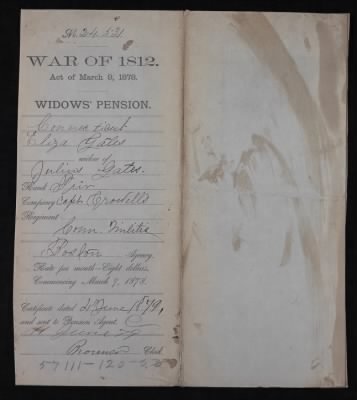 WAR OF 1812.
Act of March 9, 1878.
WIDOWS' PENSION.
Connecticut
Eliza Gates
widow of
Julius Gates.
Rank Priv
Company Capt Crowell's
Regiment
Conn Militia
Boston Agency.
Rate per month—Eight dollars,
Commencing March 9, 1878.
Certificate dated 2 June 1879,
and sent to Pension Agent.
Clerk.